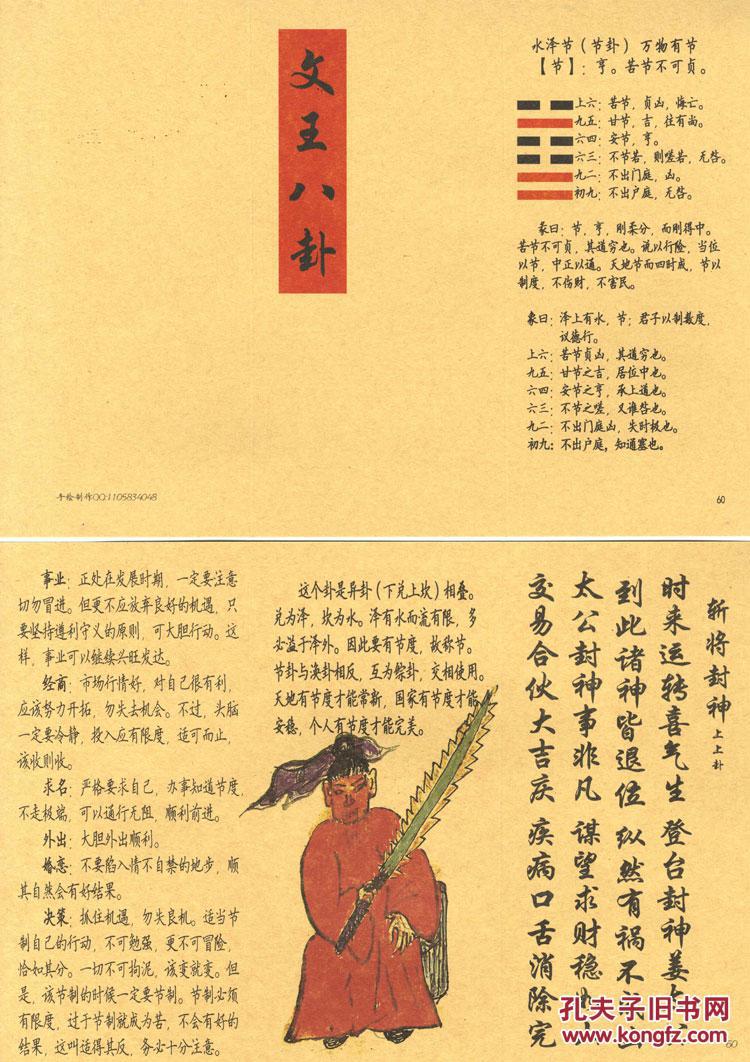 文王八卦
水泽节（节卦） 万物有节
【节】：亨。苦节不可贞。
上六：苦节，贞凶，悔亡。
九五：甘节，吉，往有尚。
六四：安节，亨。
六三：不节若，则嗟若，无咎。
九二：不出门庭，凶。
初九：不出户庭，无咎。
彖曰：节，亨，刚柔分，而刚得中。
苦节不可贞，其道穷也。说以行险，当位
以节，中正以通。天地节而四时成，节以
制度，不伤财，不害民。
象曰：泽上有水，节；君子以制数度，
议德行。
上六：苦节贞凶，其道穷也。
九五：甘节之吉，居位中也。
六四：安节之亨，承上道也。
六三：不节之嗟，又谁咎也。
九二：不出门庭凶，失时极也。
初九：不出户庭，知通塞也。
手绘制作QQ:1105834048
60
事业：正处在发展时期，一定要注意
切勿冒进。但更不应放弃良好的机遇，只
要坚持遵利守义的原则，可大胆行动。这
样，事业可以继续兴旺发达。
经商：市场行情好，对自己很有利，
应该努力开拓，勿失去机会。不过，头脑
一定要冷静，投入应有限度，适可而止，
该收则收。
求名：严格要求自己，办事知道节度，
不走极端，可以通行无阻，顺利前进。
外出：大胆外出顺利。
婚恋：不要陷入情不自禁的地步，顺
其自然会有好结果。
决策：抓住机遇，勿失良机。适当节
制自己的行动，不可勉强，更不可冒险，
恰如其分。一切不可拘泥，该变就变。但
是，该节制的时候一定要节制。节制必须
有限度，过于节制就成为苦，不会有好的
结果，这叫适得其反，务必十分注意。
这个卦是异卦（下兑上坎）相叠。
兑为泽，坎为水。泽有水而流有限，多
必溢于泽外。因此要有节度，故称节。
节卦与涣卦相反，互为综卦，交相使用。
天地有节度才能常新，国家有节度才能
安稳，个人有节度才能完美。
斩将封神 上上卦
时来运转喜气生 登台封神姜
到此诸神皆退位 纵然有祸不
太公封神事非凡 谋望求财稳
交易合伙大吉庆 疾病口舌消除完
孔夫子旧书网
www.kongfz.com
60